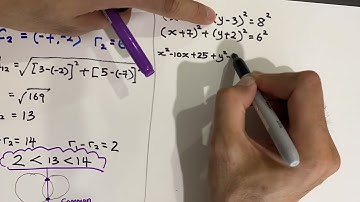 C₂ = (-7, -2) r₂ = 6
(y-3)² = 8²
(x+7)² + (y+2)² = 6²
₁₂ = √[3-(-2)]² + [5-(-7)]²
x²-10x+25+y²
= √169
= 13
r₂ = 14
r₁-r₂ = 2
2 < 13 < 14
Common